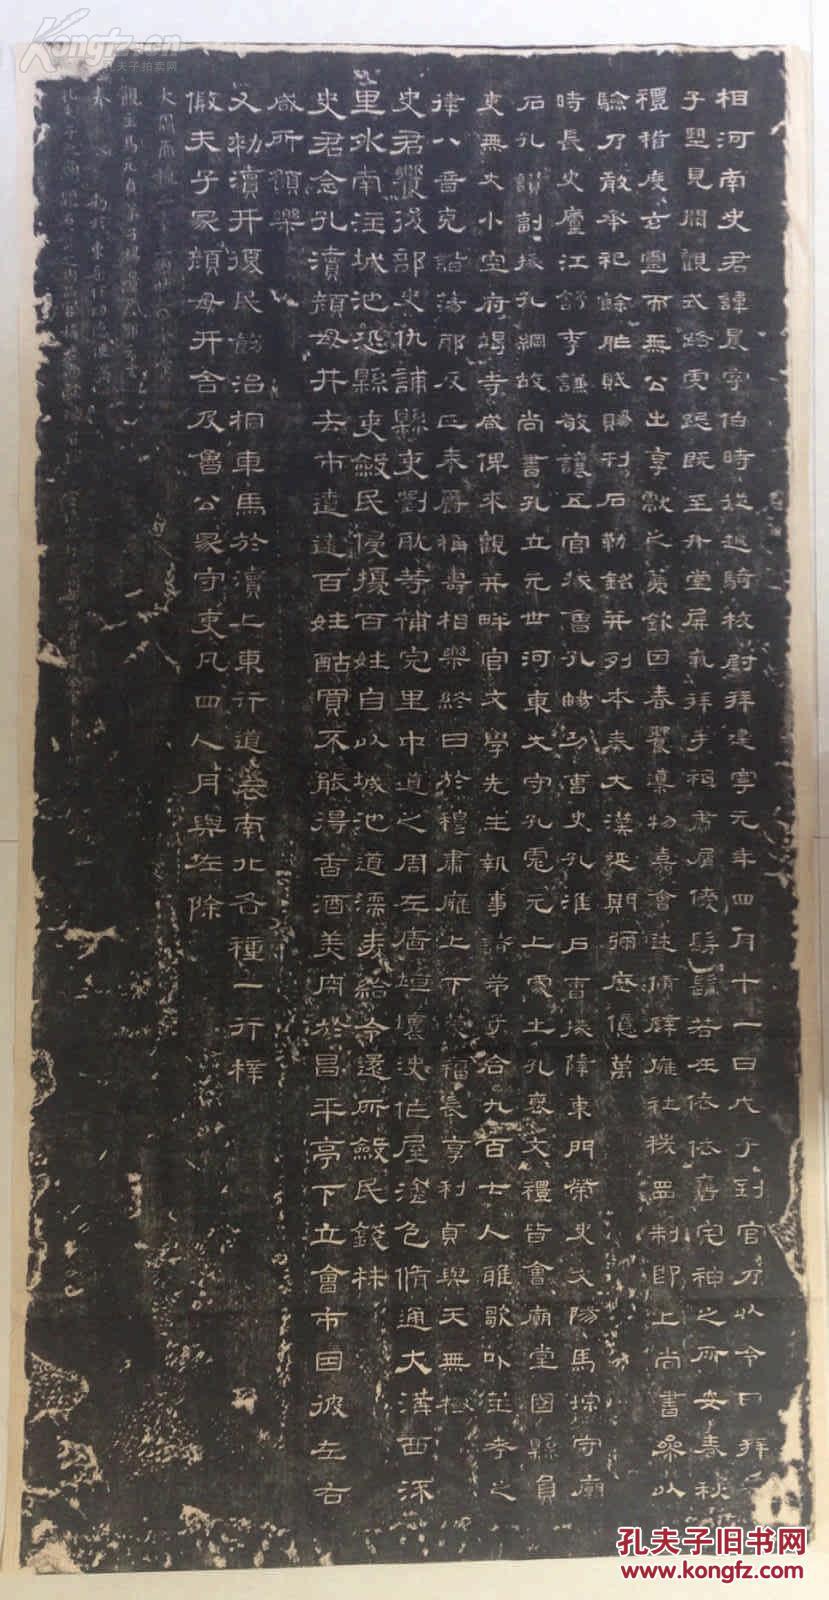 相河南史君諱晨字伯時從越騎校尉拜建寧元年四月十一日戊子到官乃以令日拜
子望見闕觀式路虔跽既至升堂屏氣拜手祗肅屑僾髣髴若在依依舊宅神之所安春秋
禮稽度玄靈而無公出享獻之薦欽因春饗導物嘉會述脩辟雍社稷品制即上尚書參以
驗乃敢承祀餘胙賦賜刊石勒銘并列本奏大漢延期彌歷億萬
時長史廬江舒李謙敬讓五官掾魯孔暘功曹史孔淮戶曹掾薛東門榮史文陽馬琮守廟
石孔讚副掾孔綱故尚書孔立元世河東大守孔彪元上處土孔褒文禮皆會廟堂國縣員
吏無大小空府竭寺咸俾來觀并畔官文學先生執事諸弟子合九百七人雅歌吹笙考之
律八音克諧蕩邪反正奉爵稱壽相樂終日於穆肅雍上下蒙福長享利貞與天無極
史君饗後部史仇誧縣吏劉耽等補完里中道之周左廧垣壞決作屋塗色脩通大溝西流
里外南注城池恐縣吏斂民侵擾百姓自以城池道濡麥給令還所斂民錢材
史君念孔瀆顏母井去市遼遠百姓酤買不能得香酒美肉於昌平亭下立會市因彼左右
咸所願樂
又勑瀆井復民餝治桐車馬於瀆上東行道表南北各種一行梓
假夫子冢顏母井舍及魯公冢守吏凡四人月與佐除
Kongfz.cn
孔夫子拍卖网
孔夫子旧书网
www.kongfz.com